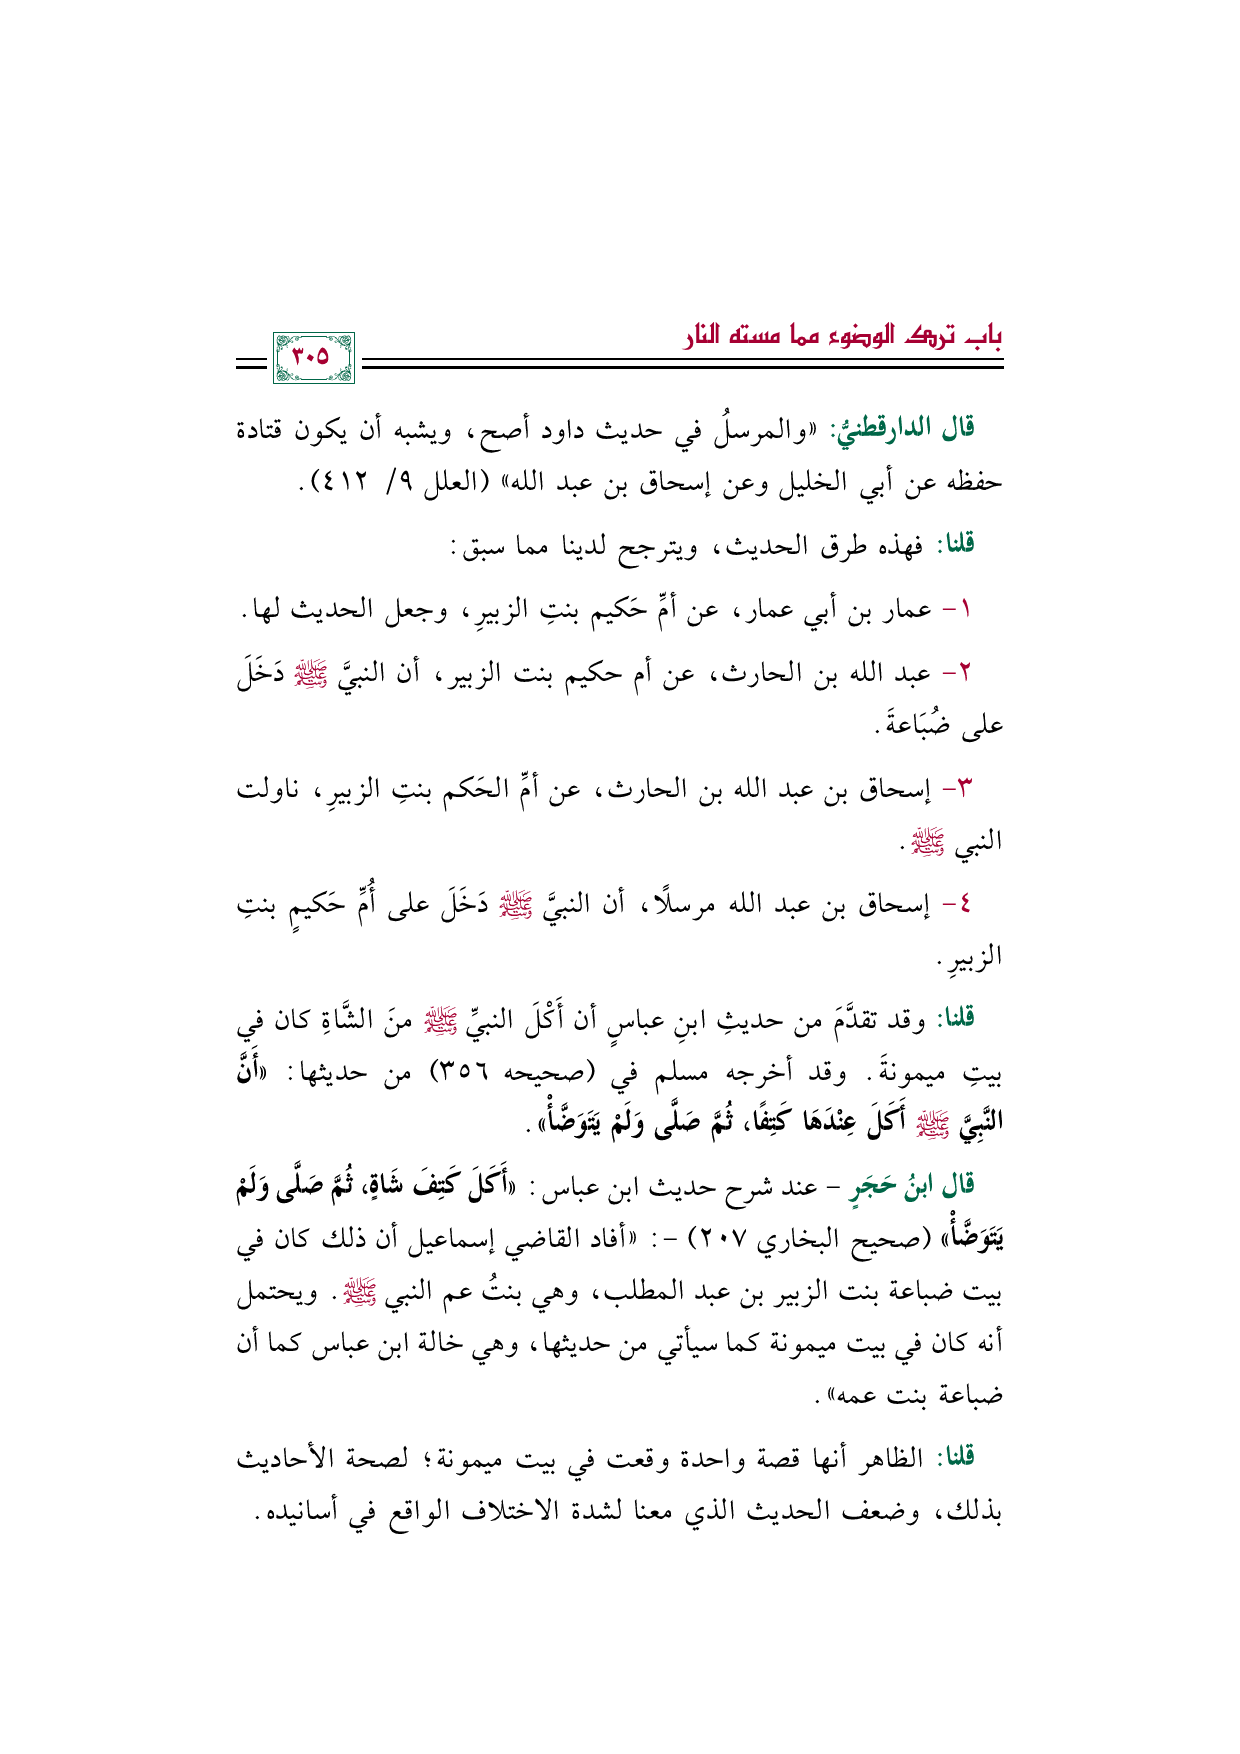 باب ترك الوضوء مما مسته النار
٣٠٥
قال الدارقطنيُّ: «والمرسلُ في حديث داود أصح، ويشبه أن يكون قتادة
حفظه عن أبي الخليل وعن إسحاق بن عبد الله» (العلل ٩/ ٤١٢).
قلنا: فهذه طرق الحديث، ويترجح لدينا مما سبق:
١- عمار بن أبي عمار، عن أمِّ حَكيم بنتِ الزبيرِ، وجعل الحديث لها.
٢- عبد الله بن الحارث، عن أم حكيم بنت الزبير، أن النبيَّ ﷺ دَخَلَ
على ضُبَاعةَ.
٣- إسحاق بن عبد الله بن الحارث، عن أمِّ الحَكم بنتِ الزبيرِ، ناولت
النبي ﷺ.
٤- إسحاق بن عبد الله مرسلًا، أن النبيَّ ﷺ دَخَلَ على أُمِّ حَكيمٍ بنتِ
الزبيرِ.
قلنا: وقد تقدَّمَ من حديثِ ابنِ عباسٍ أن أَكْلَ النبيِّ ﷺ منَ الشَّاةِ كان في
بيتِ ميمونةَ. وقد أخرجه مسلم في (صحيحه ٣٥٦) من حديثها: «أَنَّ
النَّبِيَّ ﷺ أَكَلَ عِنْدَهَا كَتِفًا، ثُمَّ صَلَّى وَلَمْ يَتَوَضَّأْ».
قال ابنُ حَجَرٍ - عند شرح حديث ابن عباس: «أَكَلَ كَتِفَ شَاةٍ، ثُمَّ صَلَّى وَلَمْ
يَتَوَضَّأْ» (صحيح البخاري ٢٠٧) -: «أفاد القاضي إسماعيل أن ذلك كان في
بيت ضباعة بنت الزبير بن عبد المطلب، وهي بنتُ عم النبي ﷺ. ويحتمل
أنه كان في بيت ميمونة كما سيأتي من حديثها، وهي خالة ابن عباس كما أن
ضباعة بنت عمه».
قلنا: الظاهر أنها قصة واحدة وقعت في بيت ميمونة؛ لصحة الأحاديث
بذلك، وضعف الحديث الذي معنا لشدة الاختلاف الواقع في أسانيده.